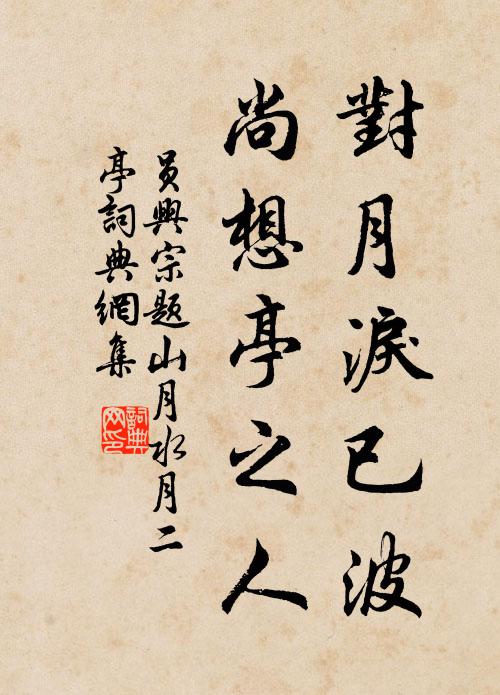 對月淚已波
尚想亭之人
員興宗題山月水月二
亭詞典網集
詞典網印